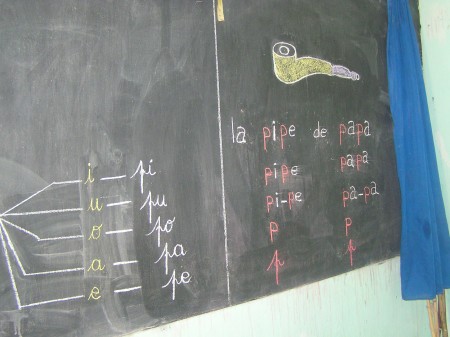 i — pi
u — pu
o — po
a — pa
e — pe
la pipe de papa
pipe papa
pi-pe pa-pa
p p
p p